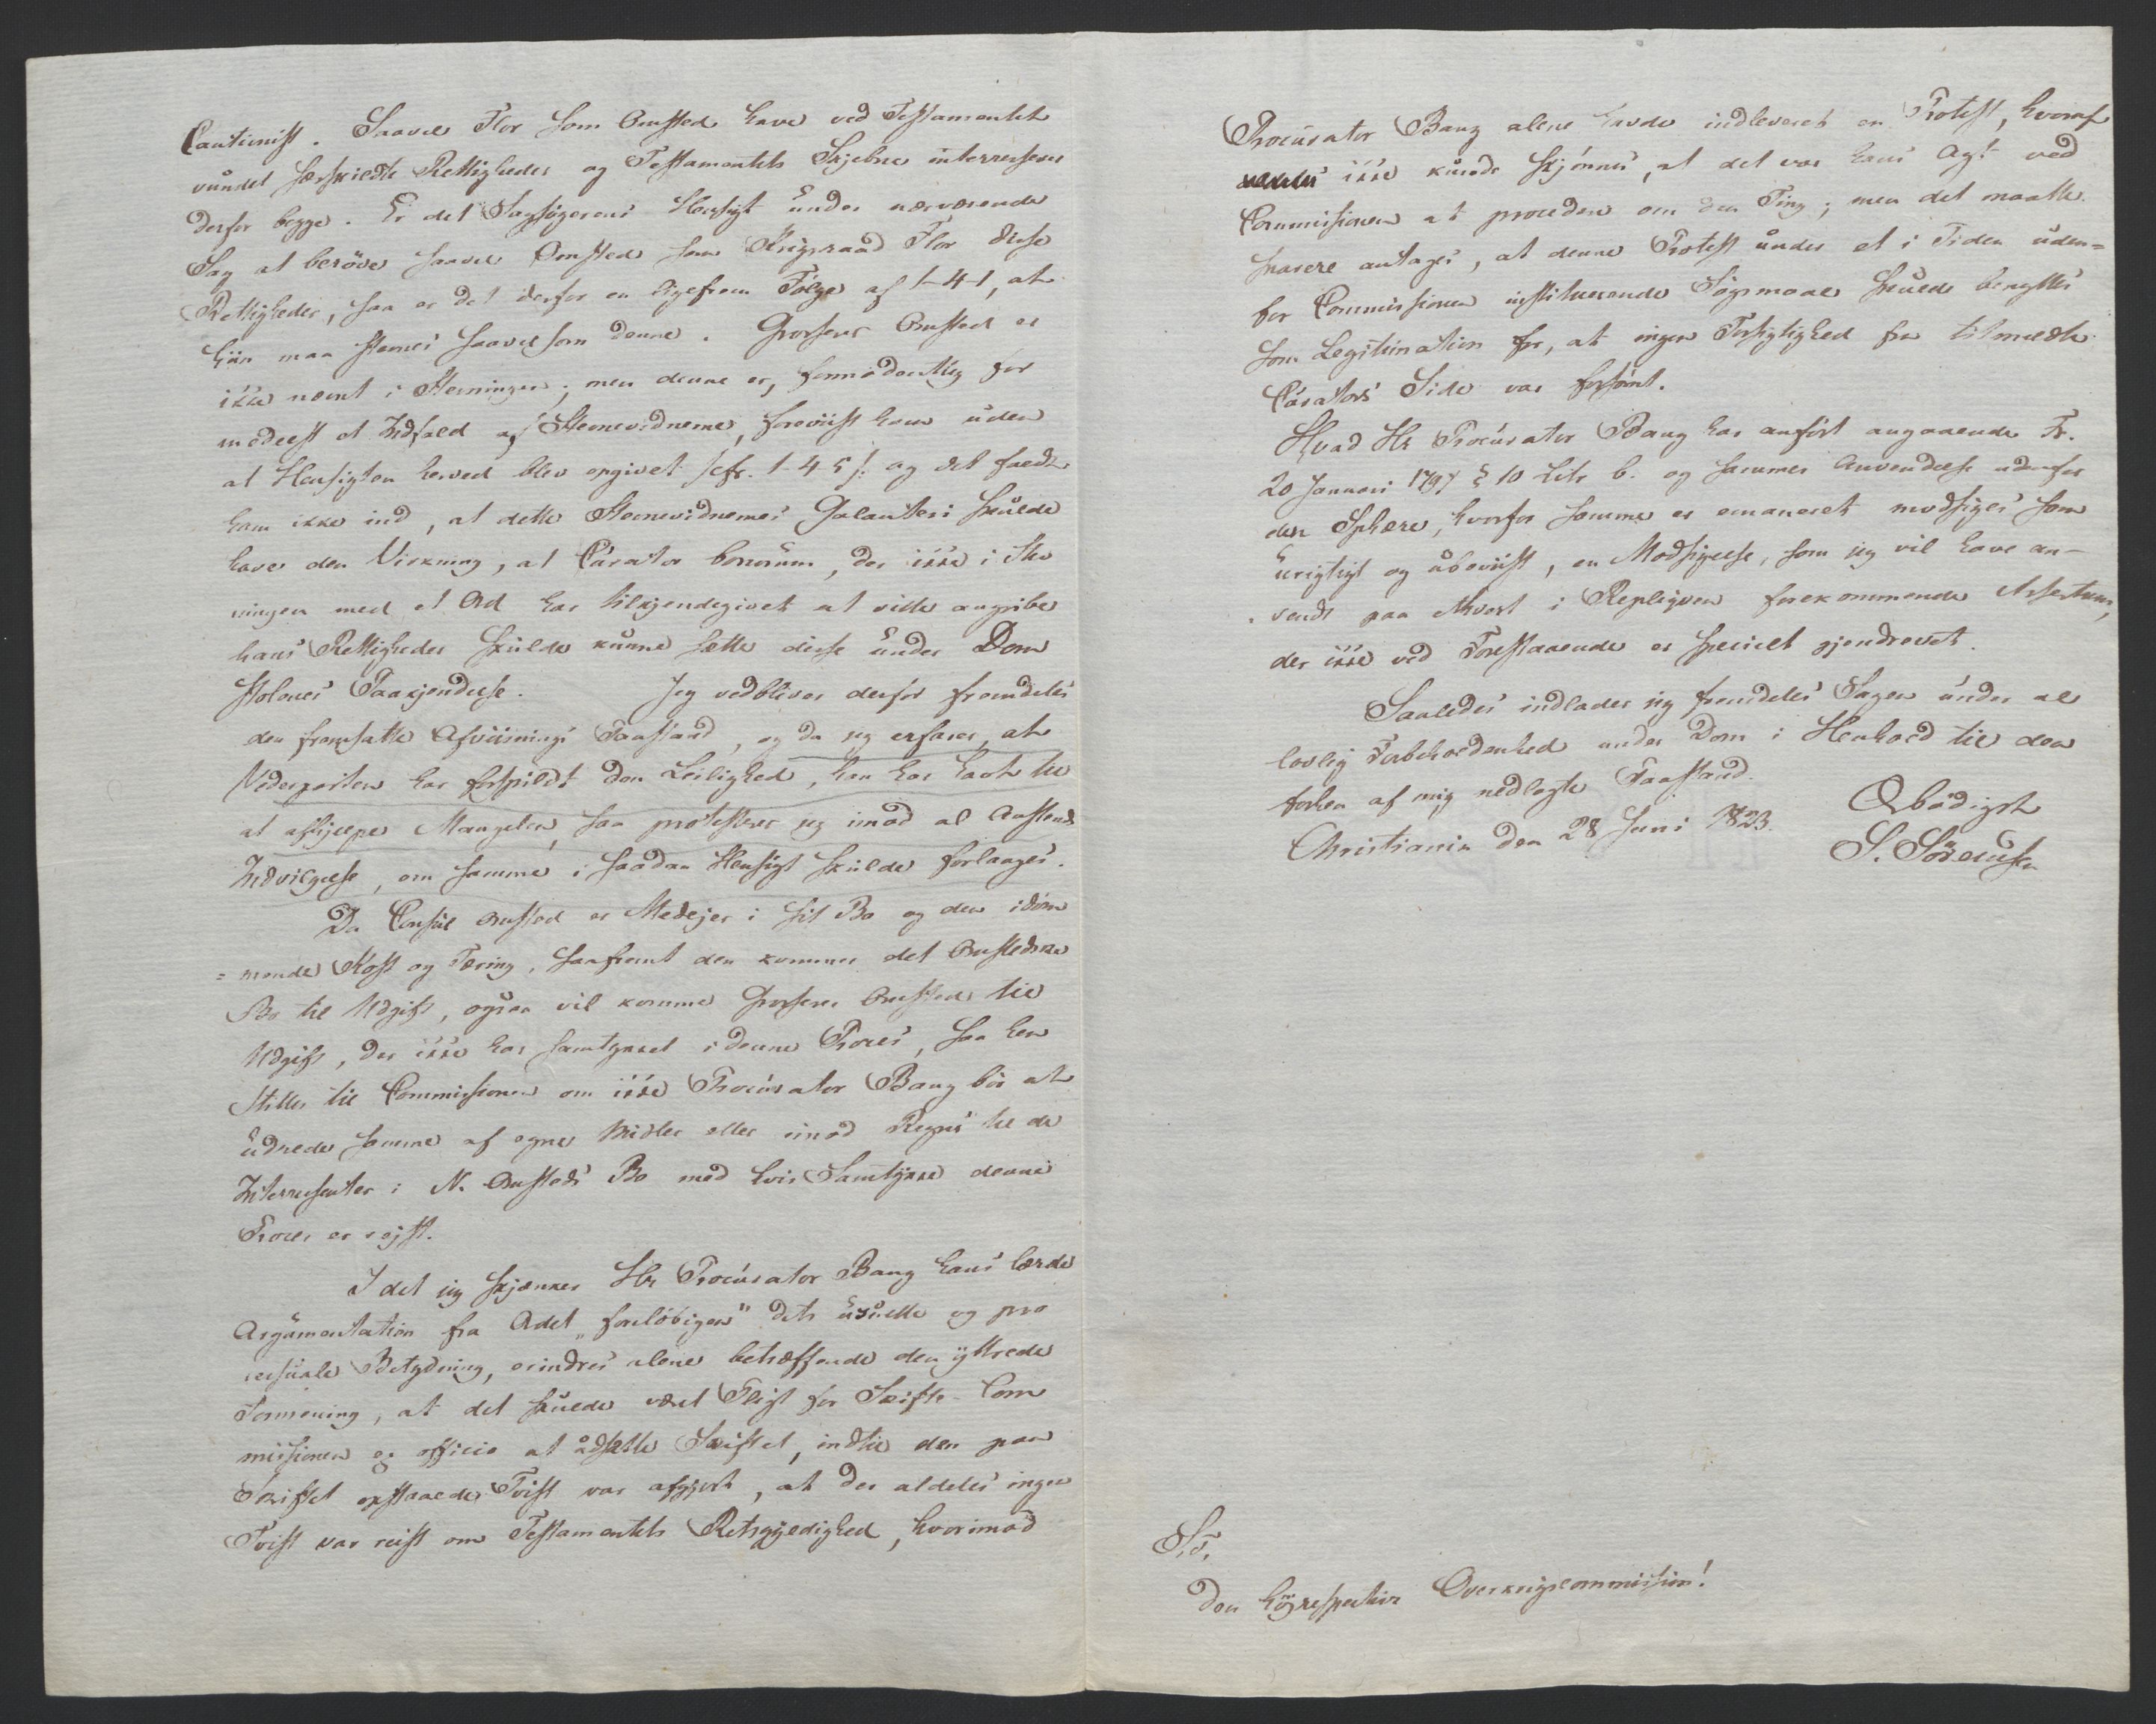 Cautionist. Saavel Flor som Omsted have ved Testamentet
vundet særskildte Rettigheder og Testamentets Skjebne interresserer
derfor begge. Er det Sagsøgerens Hensigt under nærværende
Sag at berøve saavel Omsted som Krigsraad Flor disse
Rettigheder, saa er det derfor en ligefrem Følge af 1-4-1, at
hiin maa stevnes saavelsom denne. Grosserer Omsted er
ikke nævnt i Stevningen; men denne er, formodentlig for
medelst et Indfald af Stevnevidnerne, foreviist ham uden
at Hensigten herved blev opgivet /:cfr. 1-4-5:/ og det faldt
ham ikke ind, at dette Stevnevidnernes Galanteri skulde
have den Virkning, at Curator bonorum, der ikke i Stev
ningen med et Ord har tilkjendegivet at ville angribe
hans Rettigheder skulde kunne sætte disse under Dom
stolenes Paakjendelse. Jeg vedbliver derfor fremdeles
den fremsatte Afviisnings Paastand, og da jeg erfarer, at
Vederparten har forspildt den Leilighed, han har havt til
at afhjelpe Mangelen, saa protesterer jeg imod al Anstands
Indvilgelse, om samme i saadan Hensigt skulde forlanges.
Da Consul Omsted er Medejer i sit Bo og den idøm
=mende Kost og Tæring, saafremt den kommer det Omstedske
Bo til Udgift, ogsaa vil komme Grosserer Omsted til
Udgift, der ikke har samtykket i denne Proces, saa hen
stilles til Commissionen om ikke Procurator Bang bør at
udrede samme af egne Midler eller imod Regres til de
Interressenter i N. Omsteds Bo med hvis Samtykke denne
Proces er rejst.
I det jeg skjænker Hr Procurator Bang hans lærde
Argumentation fra Ordet "foreløbigen" dets usuelle og pro
cessuale Betydning, erindres alene betræffende den yttrede
Formening, at det skulde været Pligt for Skifte-Com
missionen ex officio at udsætte Skiftet, indtil den paa
Skiftet opstaaede Tvist var afgjort, at der aldeles ingen
Tvist var reist om Testamentets Retsgyldighed, hvorimod
Procurator Bang alene havde indleveret en Protest, hvoraf
ikke kunde skjønnes, at det var hans Agt ved
Commissionen at procedere om den Ting; men det maatte
snarere antages, at denne Protest under et i Tiden uden=
for Commissionen institueraende Søgsmaal skulde benyttes
som Legitimation for, at ingen Forsigtighed fra
Curators Side var forsømt.
Hvad Hr Procurator Bang har anført angaaende Fr.
20 Januari 1797 § 10 Litr b. og sammes Anvendelse udenfor
den Sphære, hvorfor samme er emaneret modsiges som
urigtigt og ubeviist, en Modsigelse, som jeg vil have an-
vendt paa ethvert i Repliqven forekommende Assertum,
der ikke ved Forestaaende er specielt gjendrevet.
Saaledes indlader jeg fremdeles Sagen under al
lovlig Forbeholdenhed under Dom i Henhold til den
forhen af mig nedlagte Paastand.
Christiania den 28 Juni 1823.
Ærbødigst
S. Sörensen
S. T.
Den høyrespective Overkrigscommission!